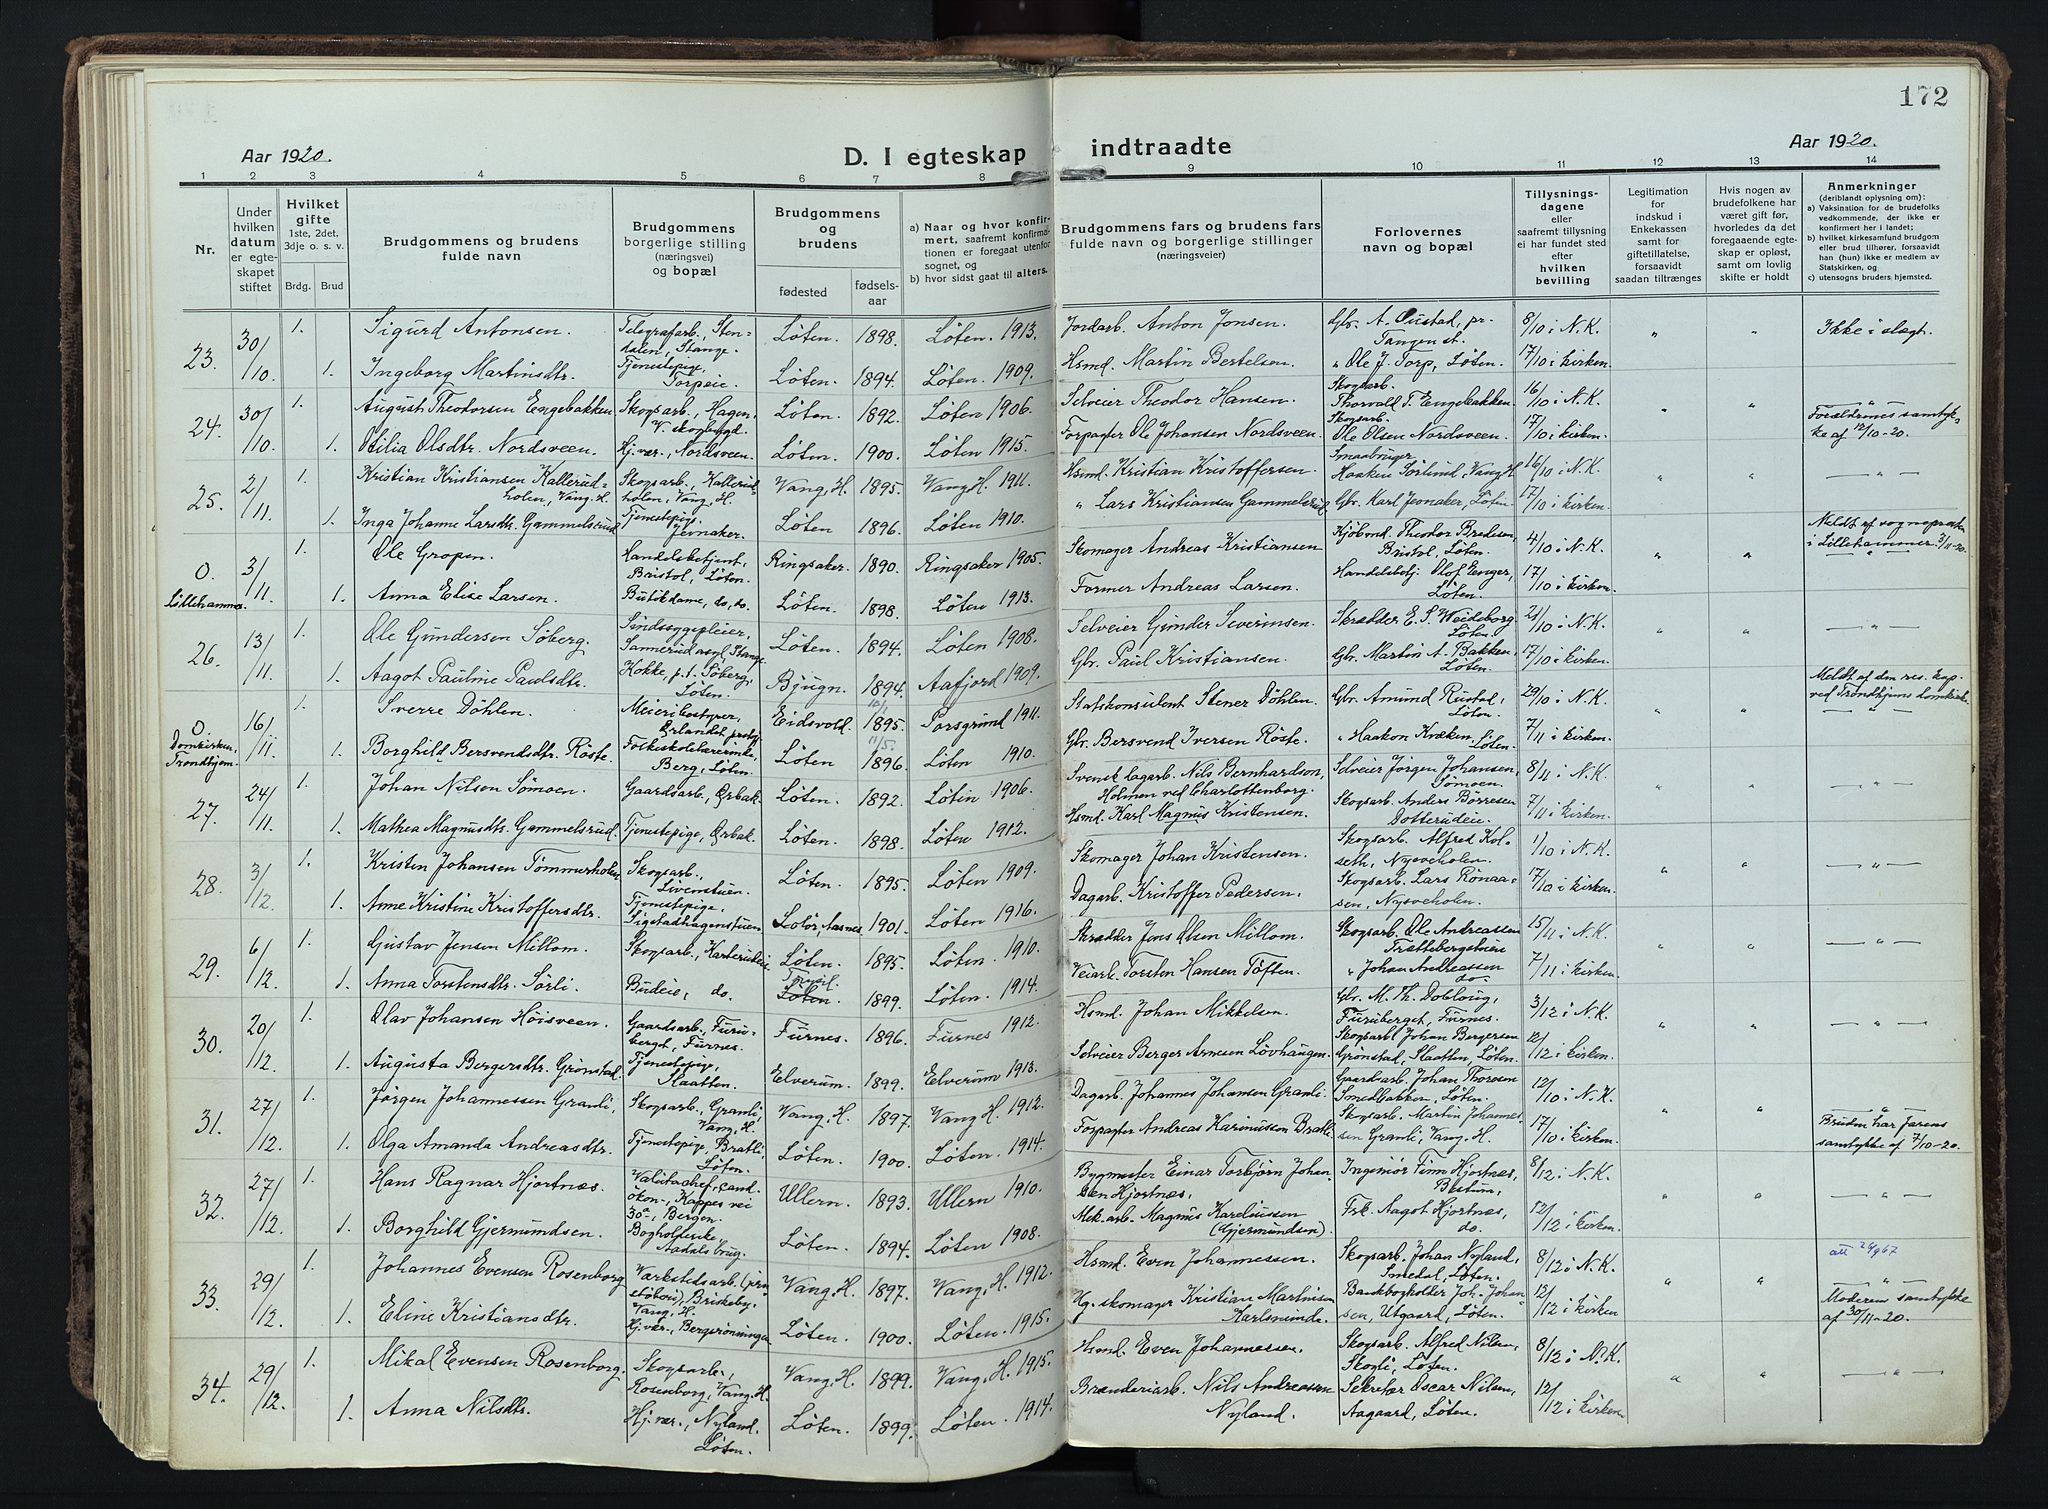 172
Aar 1920.
D. I egteskap indtraadte
Aar 1920.
1 2 3 4 5 6 7 8 9 10 11 12 13 14
Nr.
Under hvilken datum er egteskapet stiftet
Hvilket gifte 1ste, 2det, 3dje o. s. v.
Brdg. Brud
Brudgommens og brudens fulde navn
Brudgommens borgerlige stilling (næringsvei) og bopæl
Brudgommens og brudens
fødested
fødselsaar
a) Naar og hvor konfirmert, saafremt konfirmationen er foregaat utenfor sognet, og
b) hvor sidst gaat til alters.
Brudgommens fars og brudens fars fulde navn og borgerlige stillinger (næringsveier)
Forlovernes navn og bopæl
Tillysningsdagene eller saafremt tillysning ei har fundet sted efter hvilken bevilling
Legitimation for indskud i Enkekassen samt for giftetillatelse, forsaavidt saadan tiltrænges
Hvis nogen av brudefolkene har været gift før, hvorledes da det foregaaende egteskap er opløst, samt om lovlig skifte er holdt
Anmerkninger (deriblandt oplysning om):
a) Vaksination for de brudefolks vedkommende, der ikke er konfirmert her i landet;
b) hvilket kirkesamfund brudgom eller brud tilhører, forsaavidt han (hun) ikke er medlem av Statskirken, og
c) utensogns bruders hjemsted.
23. 30/10. 1. Sigurd Antonsen. Telegrafarb., Stendalen, Stange. Løten. 1898. Løten. 1913. Jordarb. Anton Jonsen. Gbr. A. Oustad, pr. Tangen st. 8/10 i N.K. " " Ikke i slegt.
1. Ingeborg Martinsdtr. Tjenestepige, Torpeie. Løten. 1894. Løten. 1909. Hsmd. Martin Bertelsen. " Ole J. Torp, Løten. 17/10 i kirken.
24. 30/10. 1. August Theodorsen Engebakken. Skogsarb., Hagen, V. skogbygd. Løten. 1892. Løten 1906. Selveier Theodor Hansen. Skogsarb. Thorvald T. Engebakken. 16/10 i N.K. " " — " —
1. Otilia Olsdtr. Nordsveen. Hj.vær., Nordsveen. Løten. 1900. Løten 1915. Forpagter Ole Johansen Nordsveen. Skogsarb. Ole Olsen Nordsveen. 17/10 i kirken. Forældrenes samtykke af 12/10-20.
25. 2/11. 1. Kristian Kristiansen Kallerudholen, Vang. H. Skogsarb., Kallerudholen, Vang, H. Vang, H. 1895. Vang H. 1911. Hsmd. Kristian Kristoffersen. Smaabruger Haaken Sørlund, Vang H. 16/10 i N.K. " " — " —
1. Inga Johanne Larsdtr. Gammelsrud. Tjenestepige, Jernaker. Løten 1896. Løten 1910. " Lars Kristiansen Gammelsrud. Gbr. Karl Jernaker, Løten. 17/10 i kirken.
0. Lillehammer. 3/11. 1. Ole Gropen. Handelsbetjent, Bristol, Løten. Ringsaker. 1890. Ringsaker 1905. Skomager Andreas Kristiansen Kjøbmd. Theodor Bredesen, Bristol, Løten. 4/10 i N.K. " " Meldt af sogneprest i Lillehammer 3/11-20.
1. Anna Elise Larsen. Butikdame, do, do. Løten. 1898. Løten 1913. Former Andreas Larsen. Handelsbetj. Olof Enger, Løten. 17/10 i kirken.
26. 13/11. 1. Ole Gundersen Søberg. Sindssygepleier, Sannerud asyl, Stange. Løten. 1894. Løten 1908. Selveier Gunder Severinsen. Skrædder E. S. Weideborg Løten. 21/10 i N.K. " " — " —
1. Aagot Pauline Paulsdtr. Kokke, p.t. Søberg, Løten. Bjugn. 1894. Aafjord 1909. Gbr. Paul Kristiansen. Gbr. Martin A. Bakken, Løten. 17/10 i kirken.
0. Domkirken, Trondhjem. 16/11. 1. Sverre Döhlen. Meieribestyrer, Ørlandet Eidsvold. 1895. Porsgrund 1911. Statskonsulent Stener Döhlen. Gbr. Amund Rustad, Løten. 29/10 i N.K. " " Meldt af den res. kap. ved Trondhjems domkirke. — " —
1. Borghild Bersvendsdtr. Röste. Folkeskolelærerinde, Berg, Løten. Løten 11/5. 1896. Løten 1910. Gbr. Bersvend Iversen Röste. " Haakon Kræken, Løten. 7/11 i kirken.
27. 24/11. 1. Johan Nilsen Sömoen. Gaardsarb., Ørbak. Løten. 1892. Løten 1906. Svensk dagarb. Nils Bernhardson, Holmen ved Charlottenborg. Selveier Jørgen Johansen, Sömoen. 8/11 i N.K. " " — " —
1. Mathea Magnusdtr. Gammelsrud. Tjenestepige, Ørbak. Løten. 1898. Løten 1912. Hsmd. Karl Magnus Kristensen. Skogsarb. Anders Börresen Dotterudeie. 7/11 i kirken.
28. 3/12. 1. Kristen Johansen Tømmerholen. Skogsarb., Livenstuen. Løten. 1895. Løten 1909. Skomager Johan Kristensen. Skogsarb. Alfred Kolseth, Nysveholen. 1/10 i N.K. " " — " —
1. Anne Kristine Kristoffersdtr. Tjenestepige, Sigstadhagenstuen. Solör, Aasnes. 1901. Løten 1916. Dagarb. Kristoffer Pedersen. Skogsarb. Lars Rönaasen, Nysveholen. 17/10 i kirken.
29. 6/12. 1. Gustav Jensen Millom. Skogsarb., Karterudeie. Løten. 1895. Løten 1910. Skrædder Jens Olsen Millom. Skogsarb. Ole Andreassen Frættebergeteie 15/11 i N.K. " " — " —
1. Anna Torstensdtr. Sörli. Budeie, do. Trysil. Løten. 1899. Løten. 1914. Veiarb. Torsten Hansen Töften. " Johan Andreassen do. 7/11 i kirken.
30. 20/12. 1. Olav Johansen Höisveen. Gaardsarb., Furuberget, Furnes. Furnes. 1896. Furnes 1912. Hsmd. Johan Mikkelsen. Gbr. M. Th. Dobloug, Furuberget, Furnes. 3/12 i N.K. " " — " —
1. Augusta Bergersdtr. Grönstad. Tjenestepige, Slaatten. Elverum. 1899. Elverum 1913. Selveier Berger Arnesen Lövhaugen. Skogsarb. Johan Bergersen Grönstad, Slaatten, Løten. 12/12 i kirken.
31. 27/12. 1. Jörgen Johannessen Granli. Skogsarb., Granli, Vang, H. Vang, H. 1897. Vang, H. 1912. Dagarb. Johannes Johansen Granli. Gaardsarb. Johan Thoresen Smedbakken, Løten. 12/10 i N.K. " " — " —
1. Olga Amanda Andreasdtr. Tjenestepige, Bratli, Løten. Løten. 1900. Løten. 1914. Forpagter Andreas Karinusen Bratli. Skogsarb. Martin Johannessen Granli, Vang, H. 17/10 i kirken. Bruden har farens samtykke af 7/10-20.
32. 27/12. 1. Hans Ragnar Hjortnæs. Valutachef, cand. økon., Kappes vei 30a, Bergen. Ullern. 1893. Ullern 1910. Bygmester Einar Torbjørn Johansen Hjortnæs, Ingeniör Finn Hjortnæs, Bestum, 8/12 i N.K. " " — " —
1. Borghild Gjermundsen. Bogholderske, Aadalsbrug. Løten. 1894. Løten 1908. Mek. arb. Magnus Kareliussen (Gjermundsen). Frk. Aagot Hjortnæs, do. 12/12 i kirken.
33. 29/12. 1. Johannes Evensen Rosenborg. Værkstedsarb. Briskeby, Vang, H. Vang, H. 1897. Vang, H. 1912. Hsmd. Even Johannessen. Skogsarb. Johan Nyland, Smedal, Løten. 8/12 i N.K. " " att 26/9 67 — " —
1. Eline Kristiansdtr. Hj.vær., Bergsröningen Løten. 1900. Løten. 1915. Hg. skomager Kristian Martinsen Karlsrinde. Bankbogholder Joh. Johansen, Utgaard, Løten. 12/12 i kirken Moderens samtykke af 30/11-20.
34. 29/12. 1. Mikal Evensen Rosenborg. Skogsarb., Rosenborg, Vang, H. Vang, H. 1899. Vang, H. 1915. Hsmd. Even Johannessen. Skogsarb. Alfred Nilsen, Skogli, Løten. 8/12 i N.K. " " — " —
1. Anna Nilsdtr. Hj.vær., Nyland, Løten. Løten. 1899. Løten. 1914. Brænderiarb. Nils Andreassen Nyland. Sekretær Oscar Nilsen, Aagaard, Løten. 12/12 i kirken.